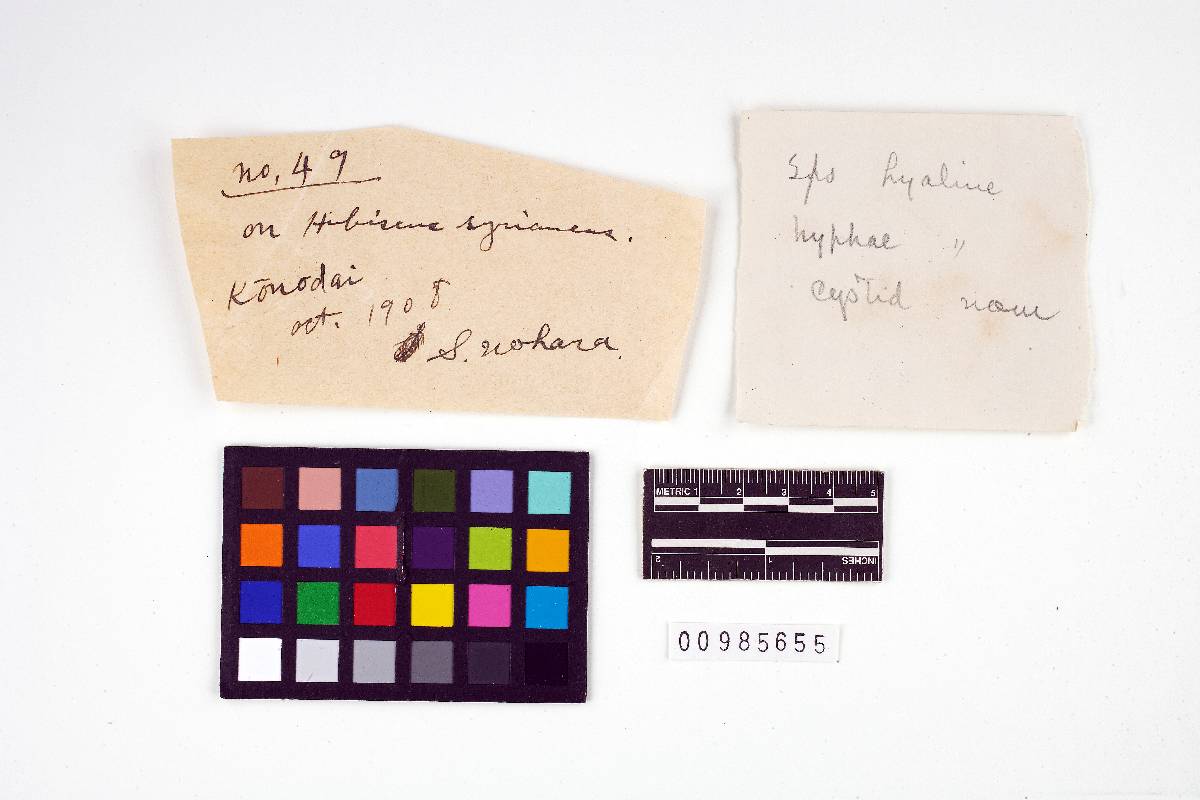 no. 49
on Hibiscus syriacus.
Kōnodai
oct. 1908
S. Nohara.
Sps hyaline
hyphae "
cystid none
METRIC 1 2 3 4 5
2 1 INCHES
00985655